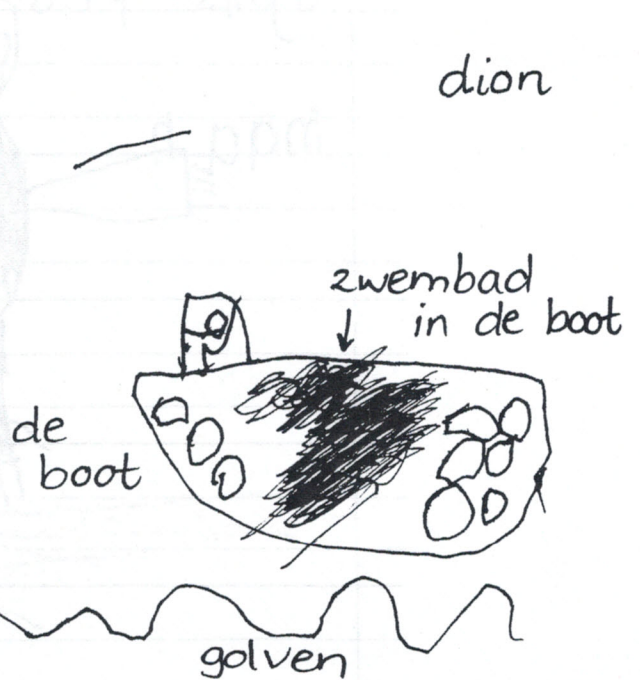 dion
zwembad
in de boot
de
boot
golven